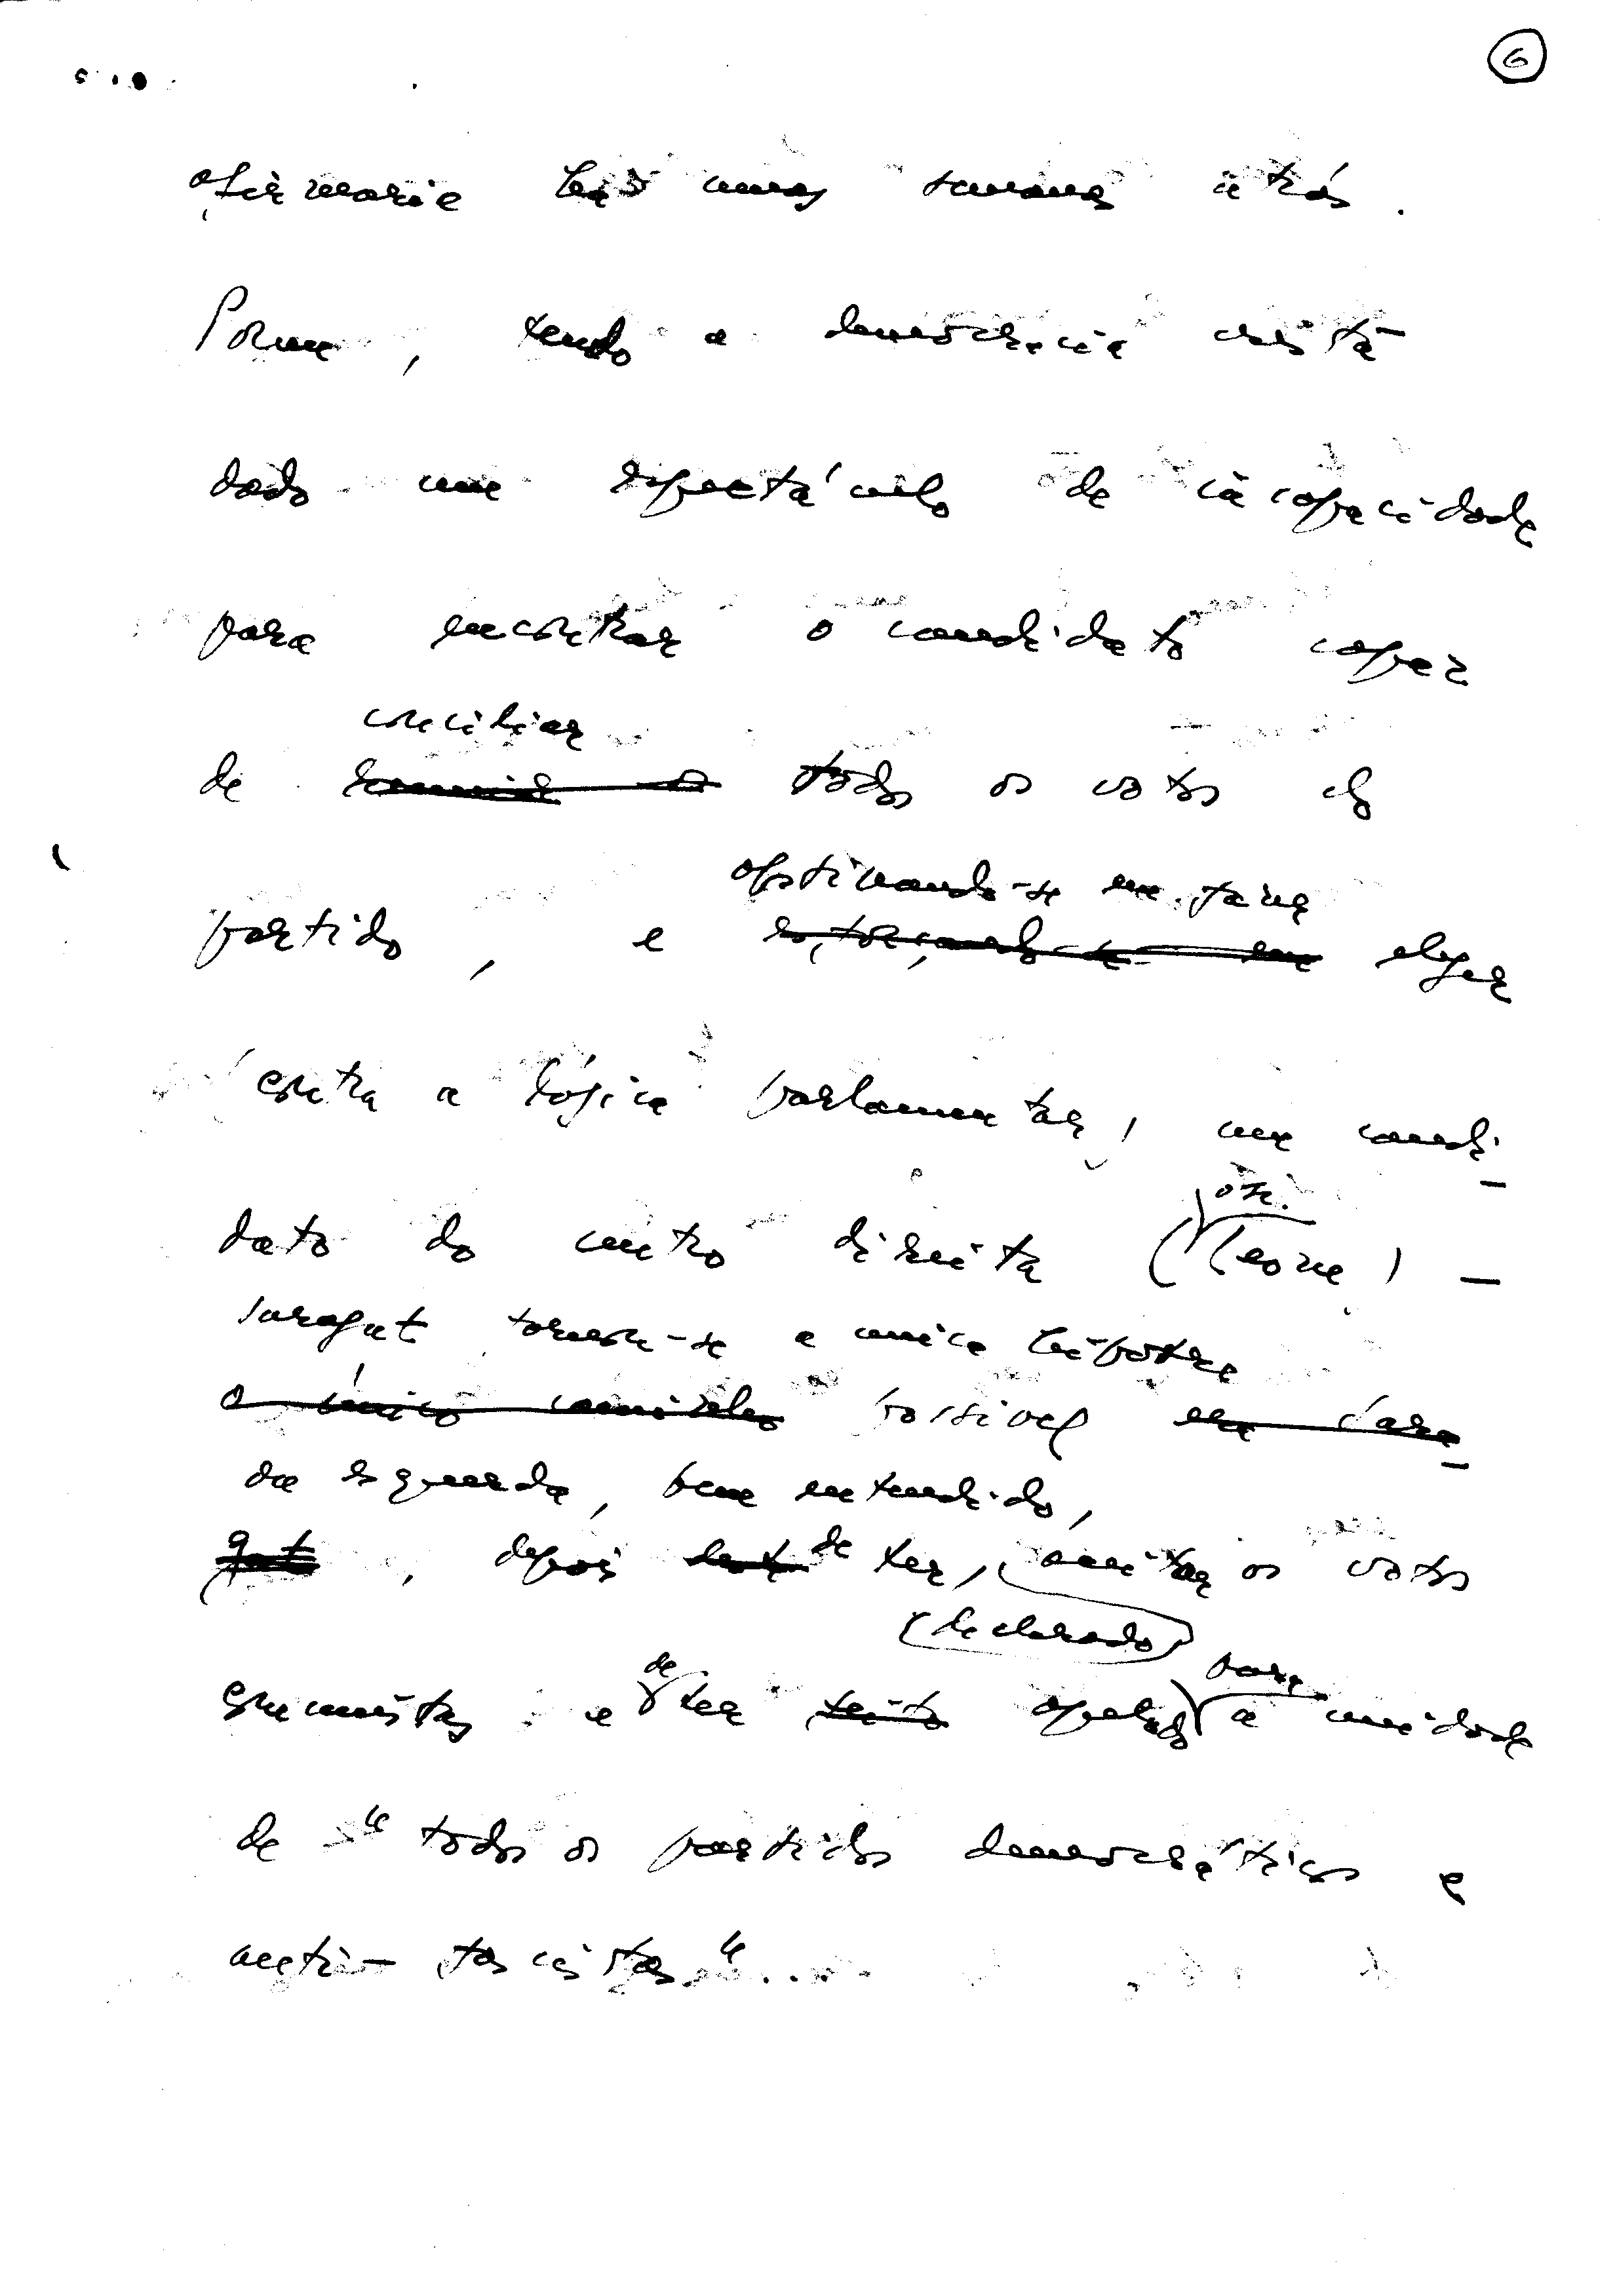 6
afirmaria há umas semanas atrás.
Porem, tendo a democracia cristã
dado um espectáculo de incapacidade
para encontrar o candidato capaz
conciliar
de reunir todos os votos do
partido, e
obstinando-se em fazer
esforçando-se em eleger
contra a lógica parlamentar, um candi-
dato do centro direita (Leone) –
Saragat tornou-se a unica hipotese
o único caminho possivel
da esquerda, bem entendido,
gat, depois de ter, aceitar os votos
(declarado)
comunistas e de ter feito apelado para a unidade
de "todos os partidos democráticos e
anti-fascistas"...